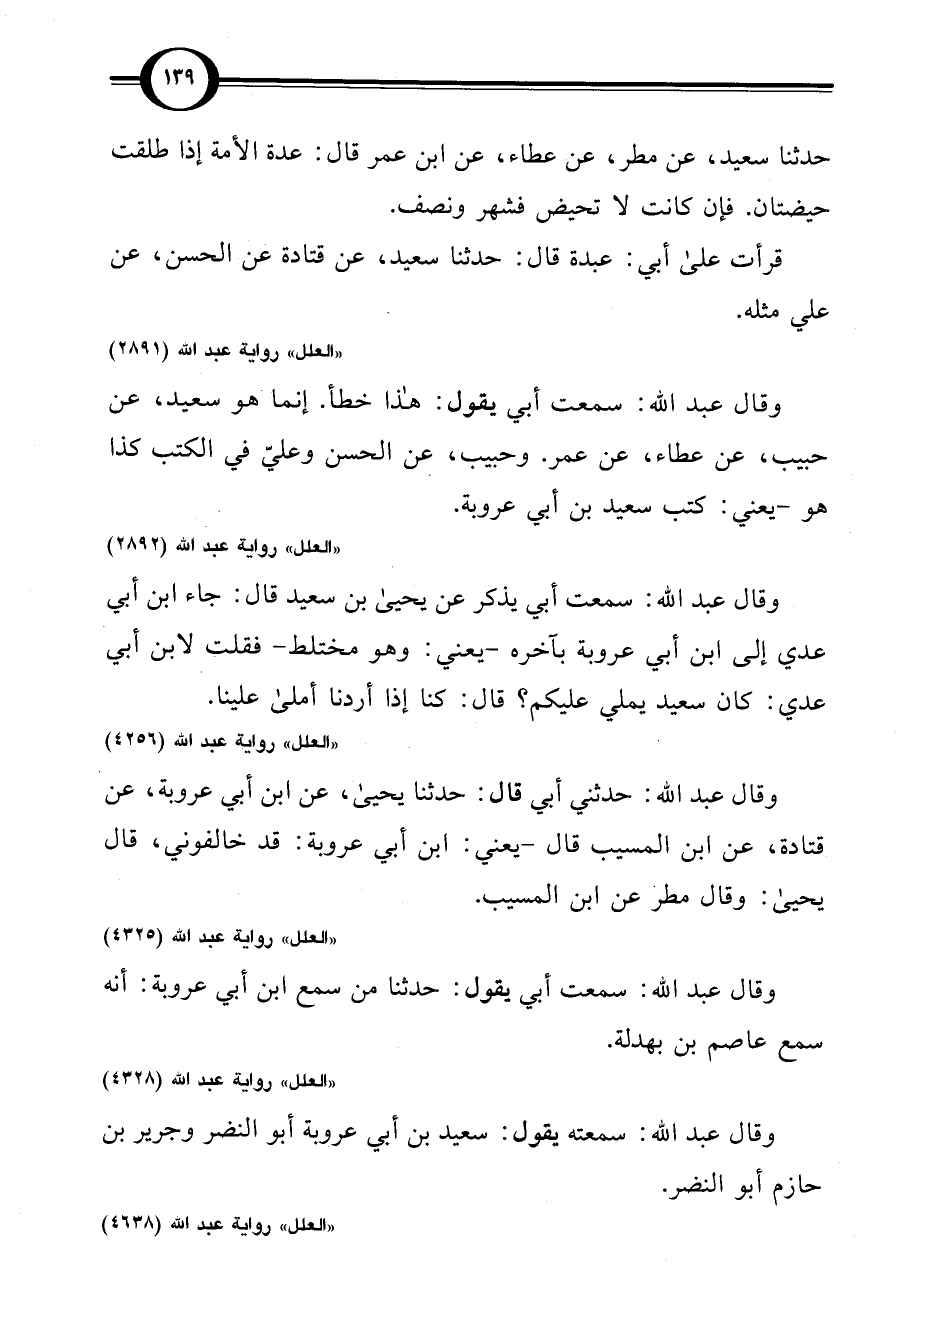 ١٣٩
حدثنا سعيد، عن مطر، عن عطاء، عن ابن عمر قال: عدة الأمة إذا طلقت
حيضتان. فإن كانت لا تحيض فشهر ونصف.
قرأت علىٰ أبي: عبدة قال: حدثنا سعيد، عن قتادة عن الحسن، عن
علي مثله.
«العلل» رواية عبد الله (٢٨٩١)
وقال عبد الله: سمعت أبي يقول: هٰذا خطأ. إنما هو سعيد، عن
حبيب، عن عطاء، عن عمر. وحبيب، عن الحسن وعليّ في الكتب كذا
هو -يعني: كتب سعيد بن أبي عروبة.
«العلل» رواية عبد الله (٢٨٩٢)
وقال عبد الله: سمعت أبي يذكر عن يحيىٰ بن سعيد قال: جاء ابن أبي
عدي إلى ابن أبي عروبة بآخره -يعني: وهو مختلط- فقلت لابن أبي
عدي: كان سعيد يملي عليكم؟ قال: كنا إذا أردنا أملىٰ علينا.
«العلل» رواية عبد الله (٤٢٥٦)
وقال عبد الله: حدثني أبي قال: حدثنا يحيىٰ، عن ابن أبي عروبة، عن
قتادة، عن ابن المسيب قال -يعني: ابن أبي عروبة: قد خالفوني، قال
يحيىٰ: وقال مطر عن ابن المسيب.
«العلل» رواية عبد الله (٤٣٢٥)
وقال عبد الله: سمعت أبي يقول: حدثنا من سمع ابن أبي عروبة: أنه
سمع عاصم بن بهدلة.
«العلل» رواية عبد الله (٤٣٢٨)
وقال عبد الله: سمعته يقول: سعيد بن أبي عروبة أبو النضر وجرير بن
حازم أبو النضر.
«العلل» رواية عبد الله (٤٦٣٨)